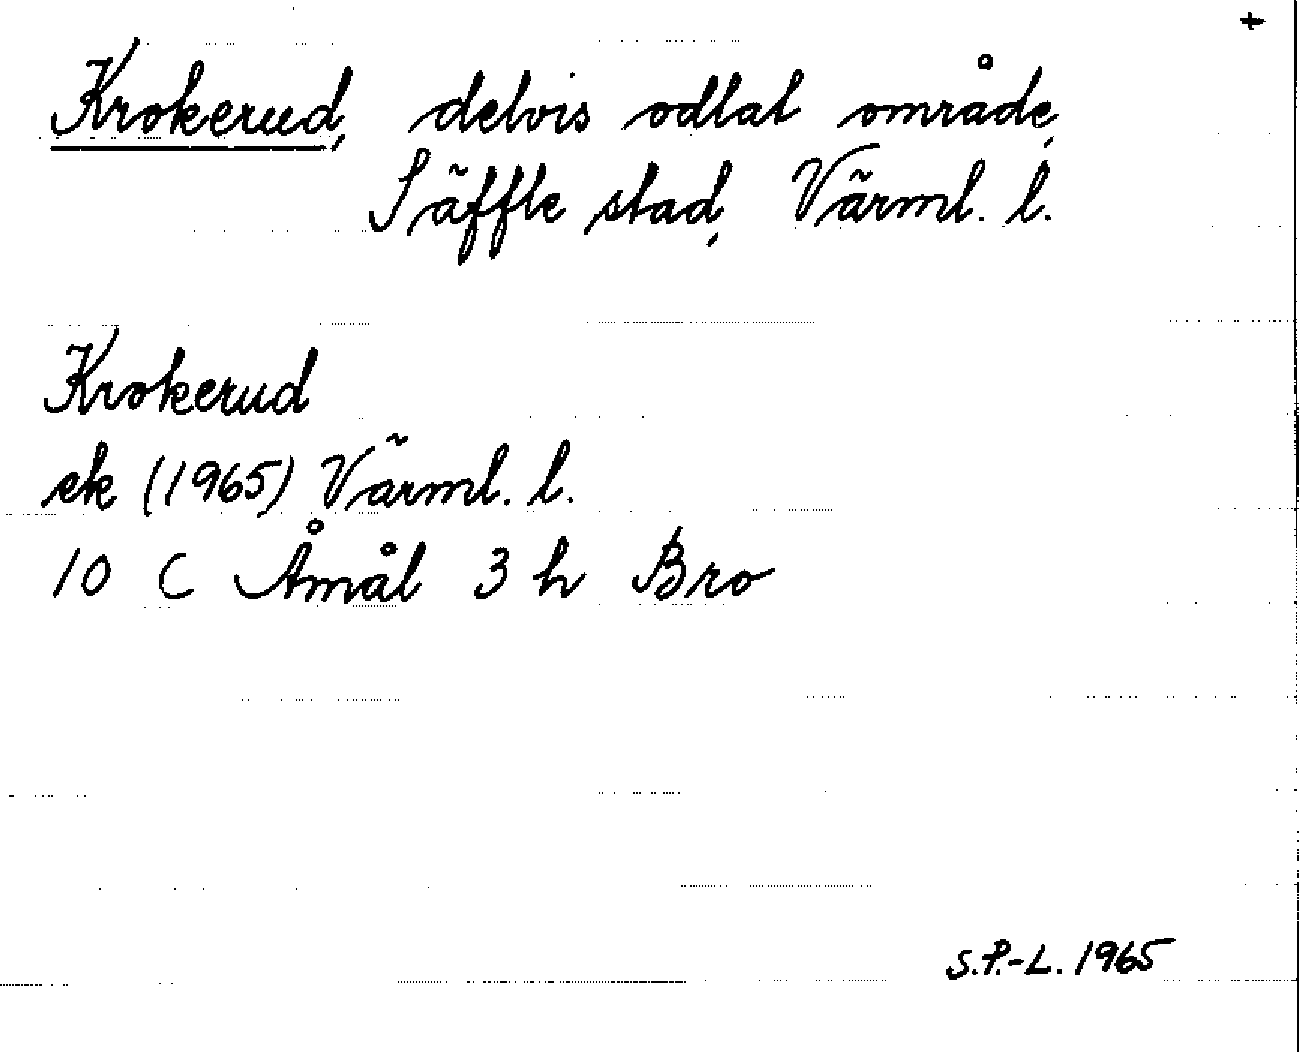 +
Krokerud, delvis odlat område,
Säffle stad, Värml. l.
Krokerud
ek (1965) Värml. l.
10 C Åmål 3 h Bro
S.P.-L. 1965